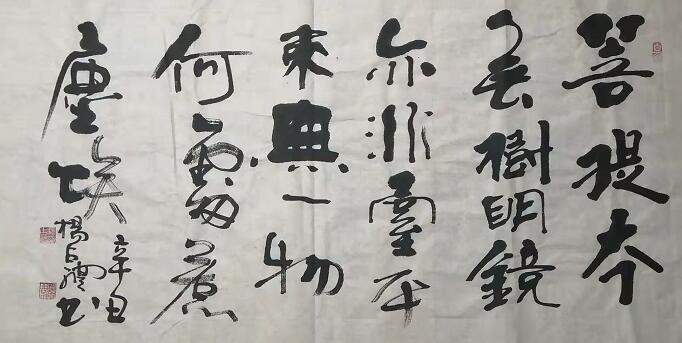 菩提本
無樹明鏡
亦非臺本
来無一物
何處惹
塵埃
辛丑
楊占 书